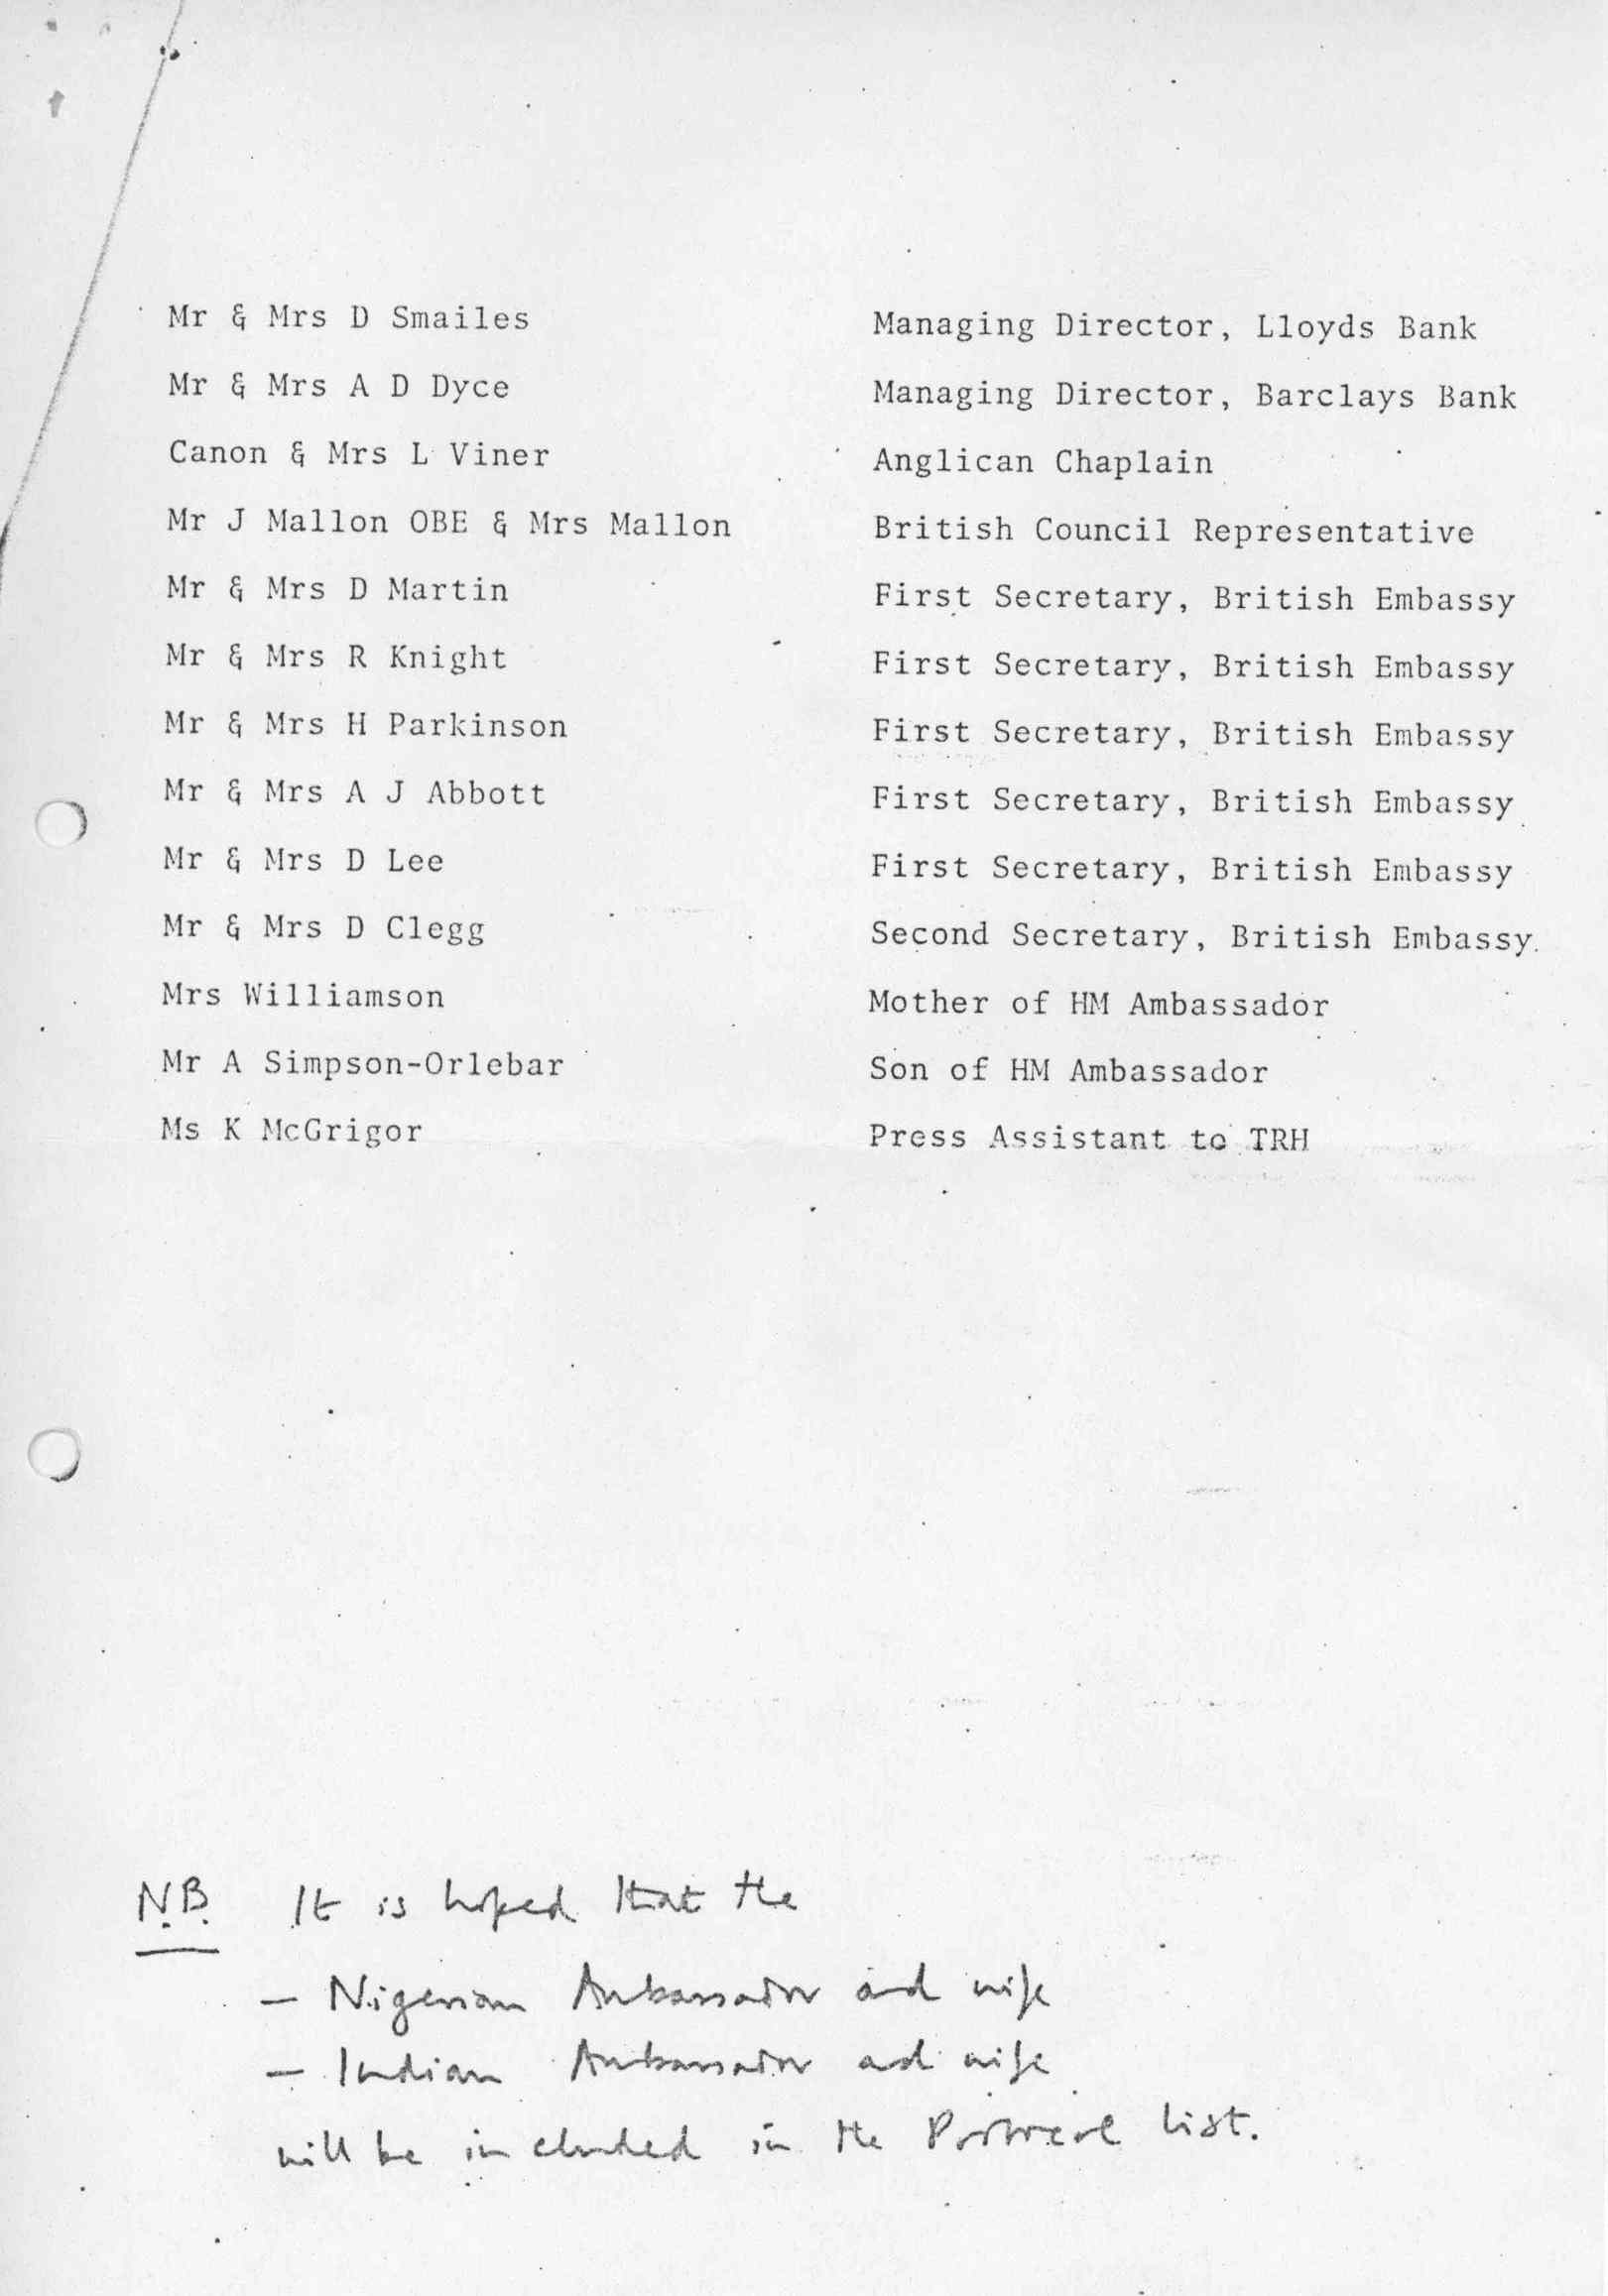 Mr & Mrs D Smailes Managing Director, Lloyds Bank
Mr & Mrs A D Dyce Managing Director, Barclays Bank
Canon & Mrs L Viner Anglican Chaplain
Mr J Mallon OBE & Mrs Mallon British Council Representative
Mr & Mrs D Martin First Secretary, British Embassy
Mr & Mrs R Knight First Secretary, British Embassy
Mr & Mrs H Parkinson First Secretary, British Embassy
Mr & Mrs A J Abbott First Secretary, British Embassy
Mr & Mrs D Lee First Secretary, British Embassy
Mr & Mrs D Clegg Second Secretary, British Embassy.
Mrs Williamson Mother of HM Ambassador
Mr A Simpson-Orlebar Son of HM Ambassador
Ms K McGrigor Press Assistant to TRH
N.B. It is hoped that the
– Nigerian Ambassador and wife
– Indian Ambassador and wife
will be included in the list.